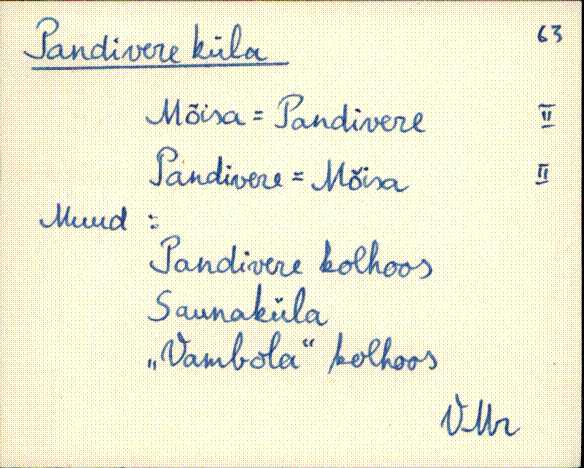 Pandivere küla 63
Mõisa = Pandivere II
Pandivere = Mõisa II
Muud :
Pandivere kolhoos
Saunaküla
„Vambola“ kolhoos
VMr